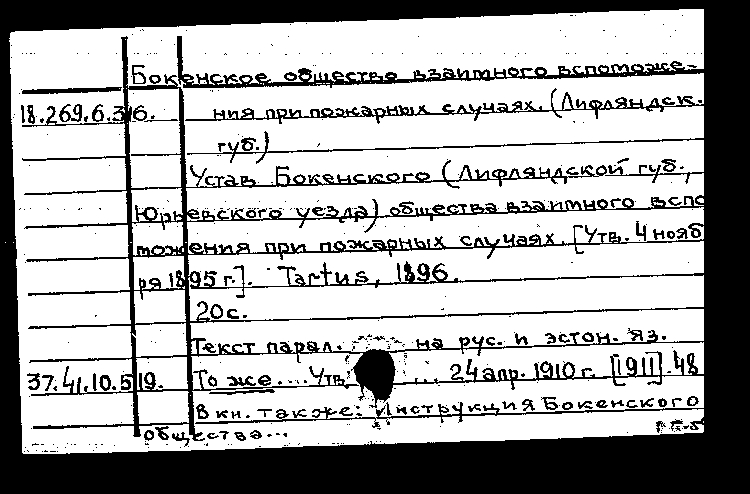 Бокенское общество взаимного вспоможе-
18.269.6.316. ния при пожарных случаях. (Лифляндск.
губ.)
Устав Бокенского (Лифляндской губ.,
Юрьевского уезда) общества взаимного вспо
можения при пожарных случаях. [Утв. 4 нояб
ря 1895 г.]. Tartus, 1896.
20с.
Текст парал. на рус. и эстон. яз.
37.41.10.519. То же.... Утв. ... 24 апр. 1910 г. [1911]. 48
В кн. также: Инструкция Бокенского
общества...